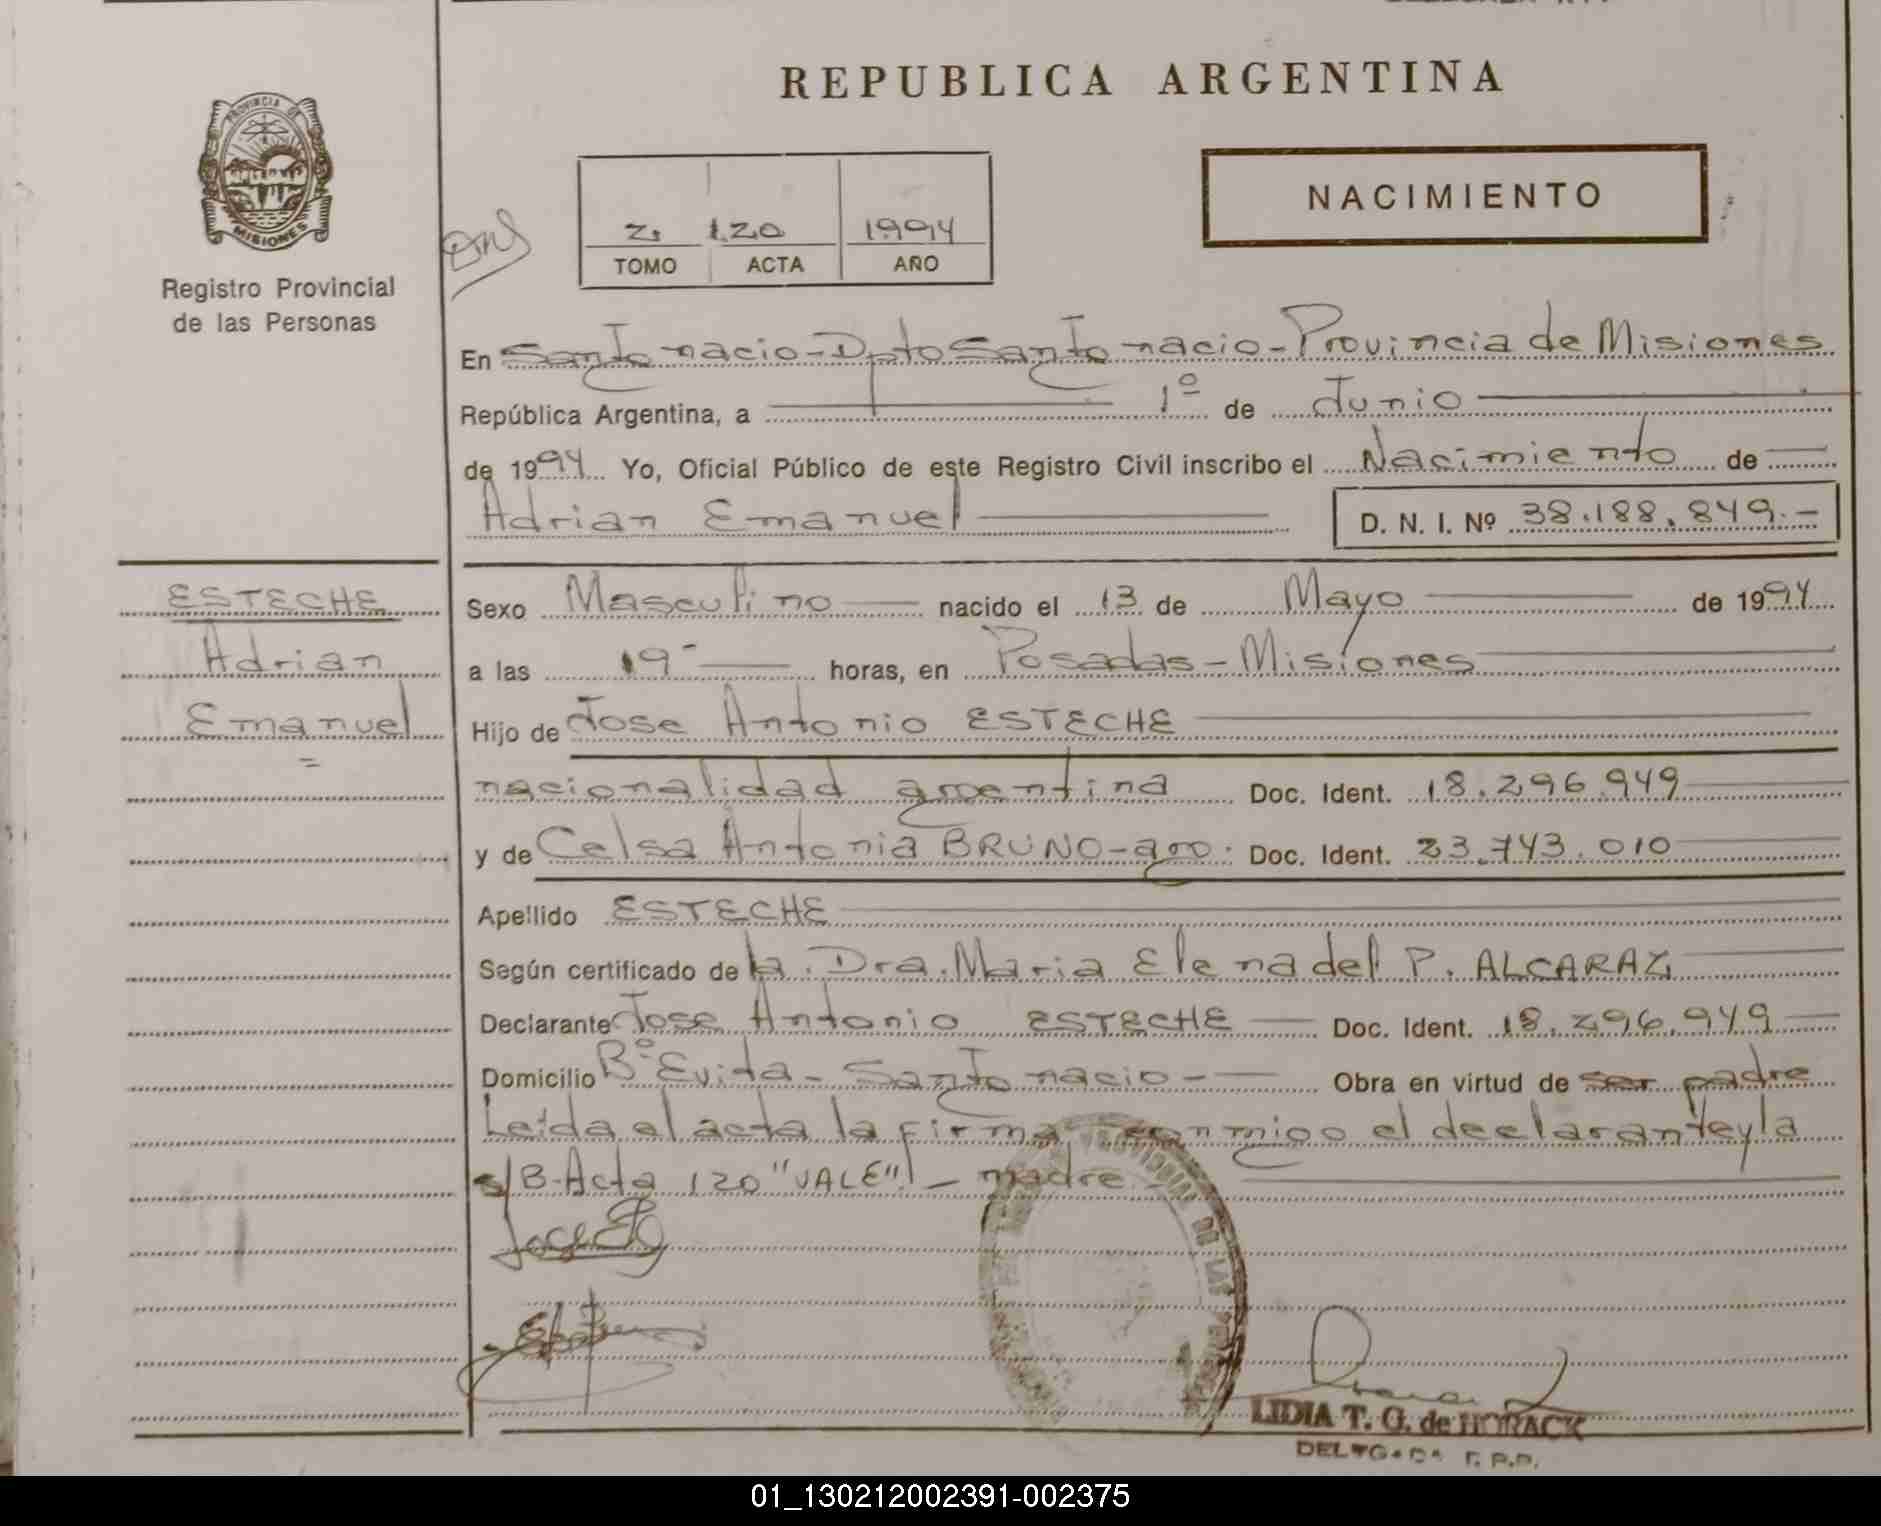 REPUBLICA ARGENTINA
PROVINCIA DE
MISIONES
Registro Provincial
de las Personas
NACIMIENTO
2. 120 1994
TOMO ACTA AÑO
En San Ignacio - Dpto San Ignacio - Provincia de Misiones
República Argentina, a 1º de Junio
de 1994 Yo, Oficial Público de este Registro Civil inscribo el Nacimiento de
Adrian Emanuel D. N. I. Nº 38.188.849.-
ESTECHE
Adrian
Emanuel
Sexo Masculino nacido el 13 de Mayo de 1994
a las 19- horas, en Posadas - Misiones
Hijo de Jose Antonio ESTECHE
nacionalidad argentina Doc. Ident. 18.296.949
y de Celsa Antonia BRUNO - arg. Doc. Ident. 23.743.010
Apellido ESTECHE
Según certificado de la Dra. Maria Elena del P. ALCARAZ
Declarante Jose Antonio ESTECHE Doc. Ident. 18.296.949
Domicilio Bº Evita - San Ignacio - Obra en virtud de ser padre
Leida el acta la firma conmigo el declarante y la
s/B. Acta 120 "VALE" - madre -
LIDIA T. G. de HORACK
01_130212002391-002375